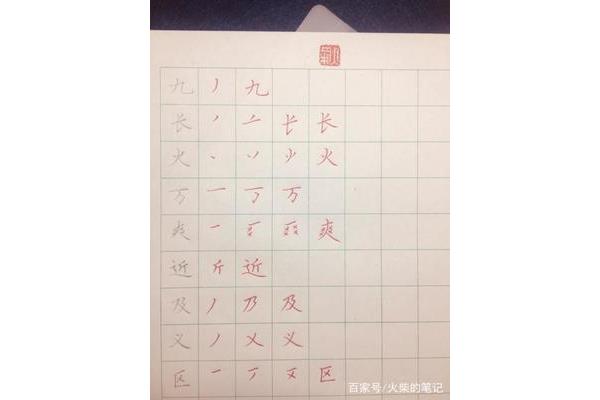 九 丿 九
长 丿 长
火 丶 丷 火
万 一 丆 万
爽 一 爽
近 斤 近
及 丿 乃 及
义 丿 乂 义
区 一 丆 区
百家号/火柴的笔记